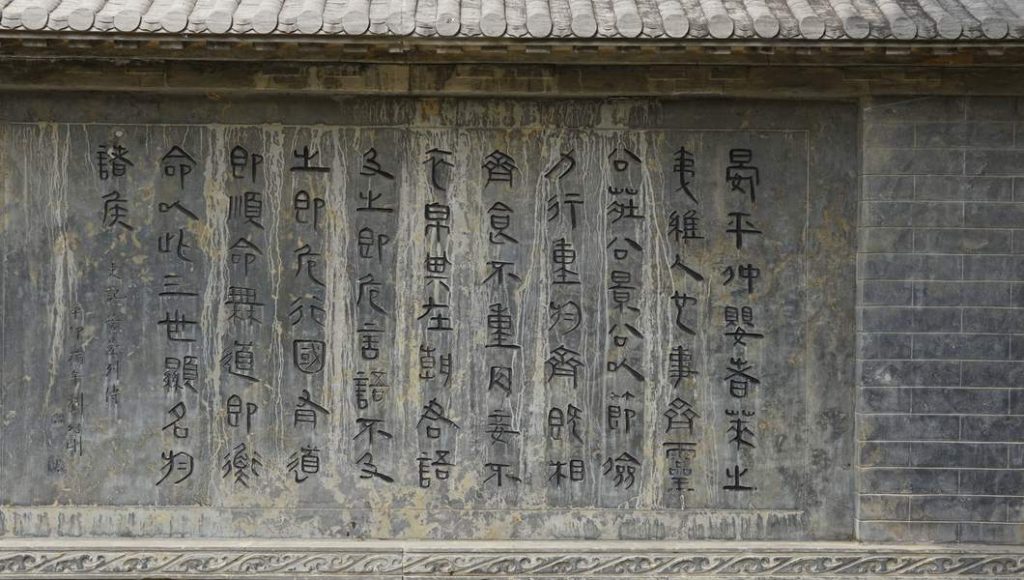 晏平仲嬰者萊之
夷維人也事齊靈
公莊公景公以節儉
力行重於齊既相
齊食不重肉妾不
衣帛其在朝君語
及之即危言語不及
之即危行國有道
即順命無道即衡
命以此三世顯名於
諸侯
史記管晏列傳